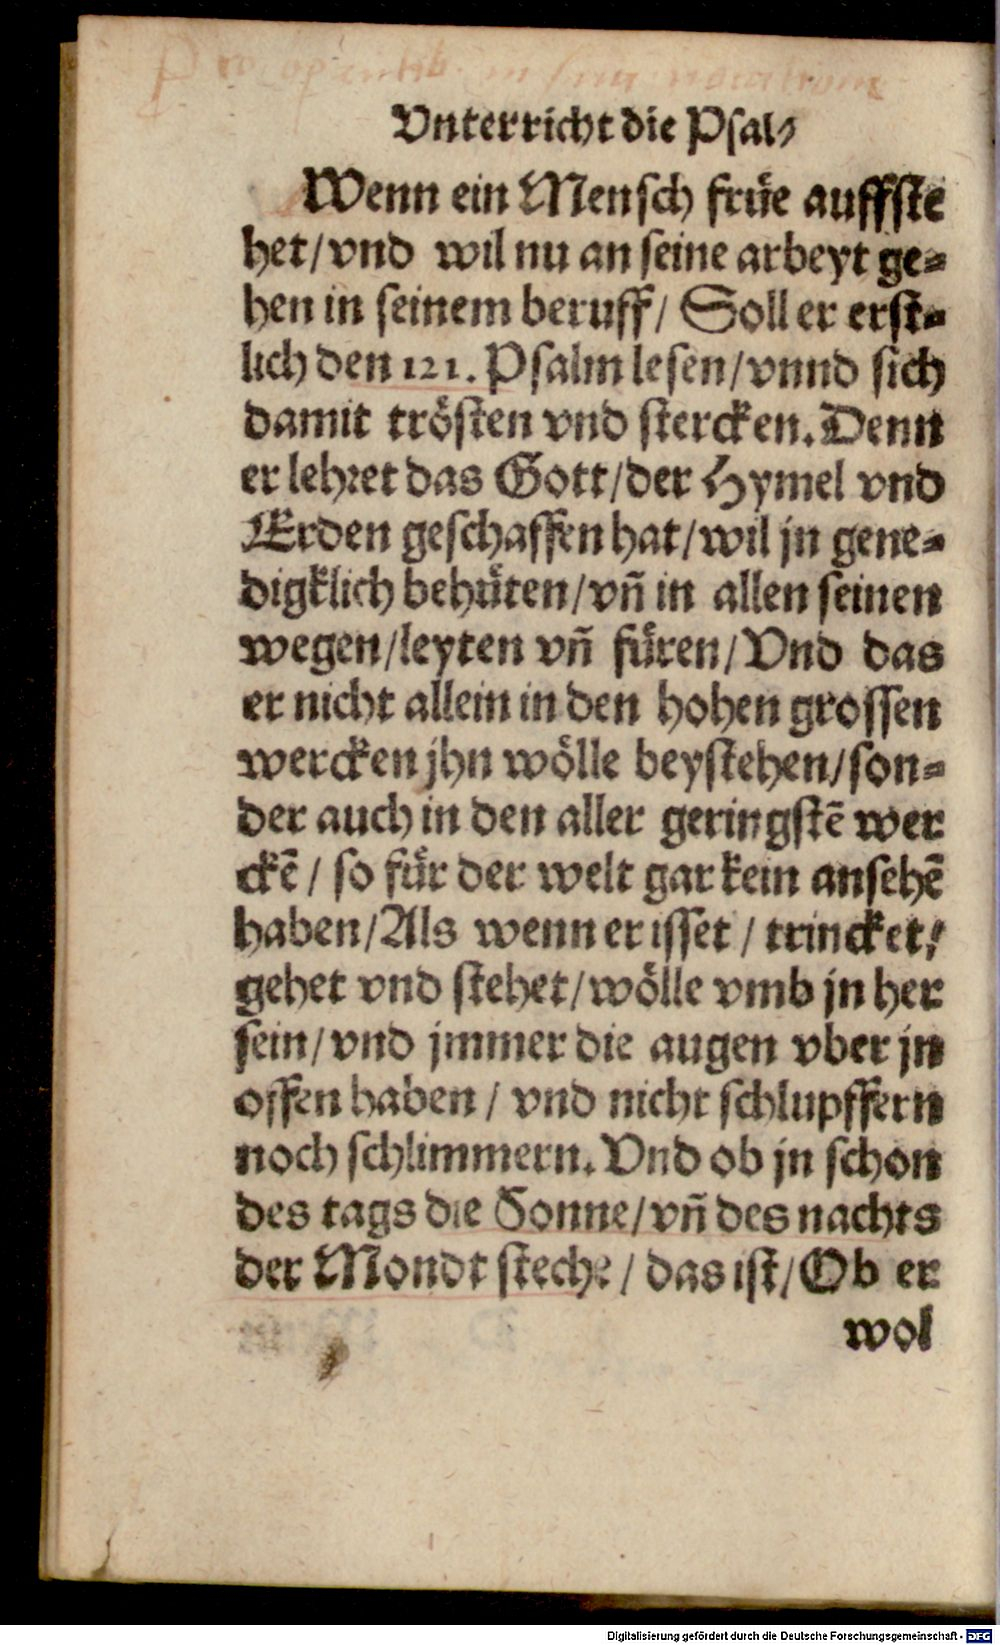 Pro operib. in sua vocatione
Vnterricht die Psal⸗
Wenn ein Mensch früe auffste
het/vnd wil nu an seine arbeyt ge⸗
hen in seinem beruff/ Soll er erst⸗
lich den 121. Psalm lesen/vnnd sich
damit trösten vnd stercken. Denn
er lehret das Gott/der Hymel vnd
Erden geschaffen hat/wil jn gene⸗
digklich behüten/vñ in allen seinen
wegen/leyten vñ füren/Vnd das
er nicht allein in den hohen grossen
wercken jhn wölle beystehen/son⸗
der auch in den aller geringstē wer
ckē / so für der welt gar kein ansehē
haben/Als wenn er isset / trincket/
gehet vnd stehet/wölle vmb jn her
sein/vnd jmmer die augen vber jn
offen haben / vnd nicht schlupffern
noch schlimmern. Vnd ob jn schon
des tags die Sonne/vñ des nachts
der Mondt steche / das ist/Ob er
wol
Digitalisierung gefördert durch die Deutsche Forschungsgemeinschaft - DFG